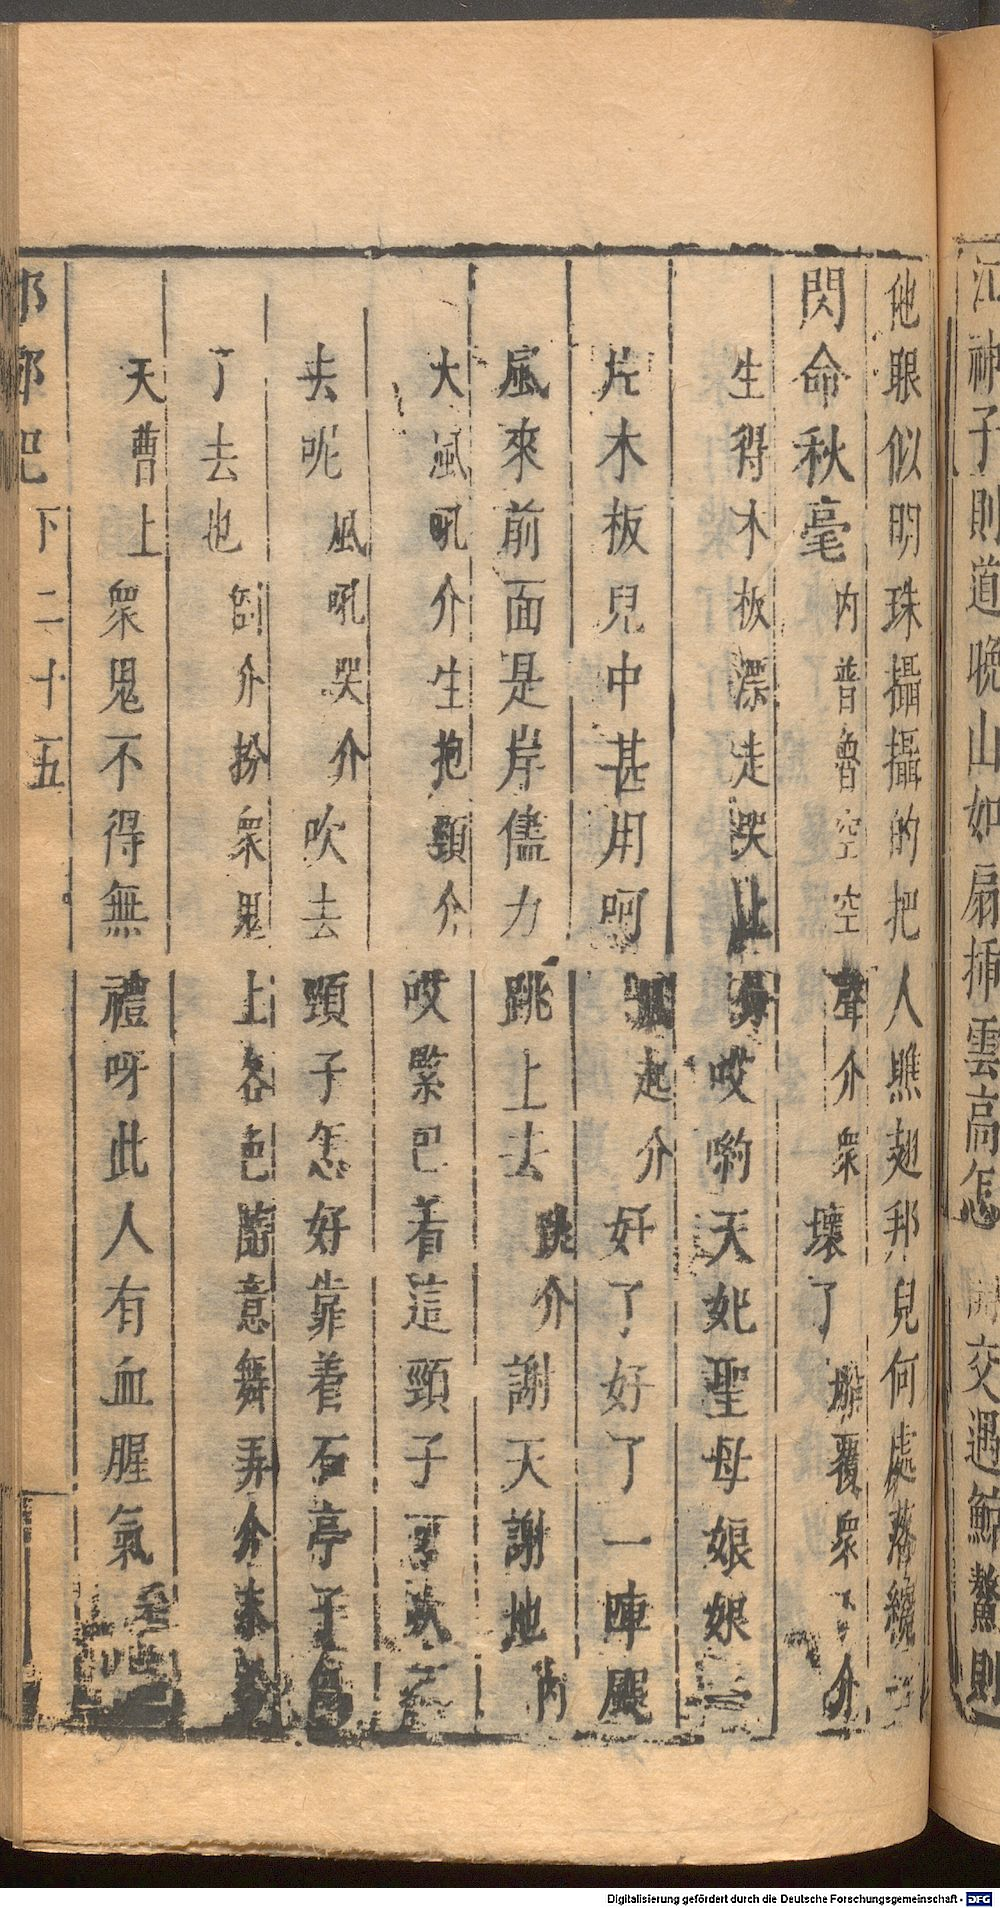 江神子則道晚山如扇揷雲高怎 交遇鯨鰲則
他眼似明珠攝攝的把人瞧翅邦兒何處落纔一
閃命秋毫內普魯空空聲介衆壞了 覆衆下介
生得木板漂走哭止 哎喲天妃聖母娘娘一
片木板兒中甚用呵 起介好了好了一陣颶
風來前面是岸儘力跳上去跳介謝天謝地內
大風吼介生抱頸介哎緊巴着這頸子 吹
去呢風吼哭介吹去頸子怎好靠着石亭子
了去也倒介扮衆鬼上各色隨意舞弄介
天曹上衆鬼不得無禮呀此人有血腥氣
邯鄲記 下 二十五
Digitalisierung gefördert durch die Deutsche Forschungsgemeinschaft - DFG